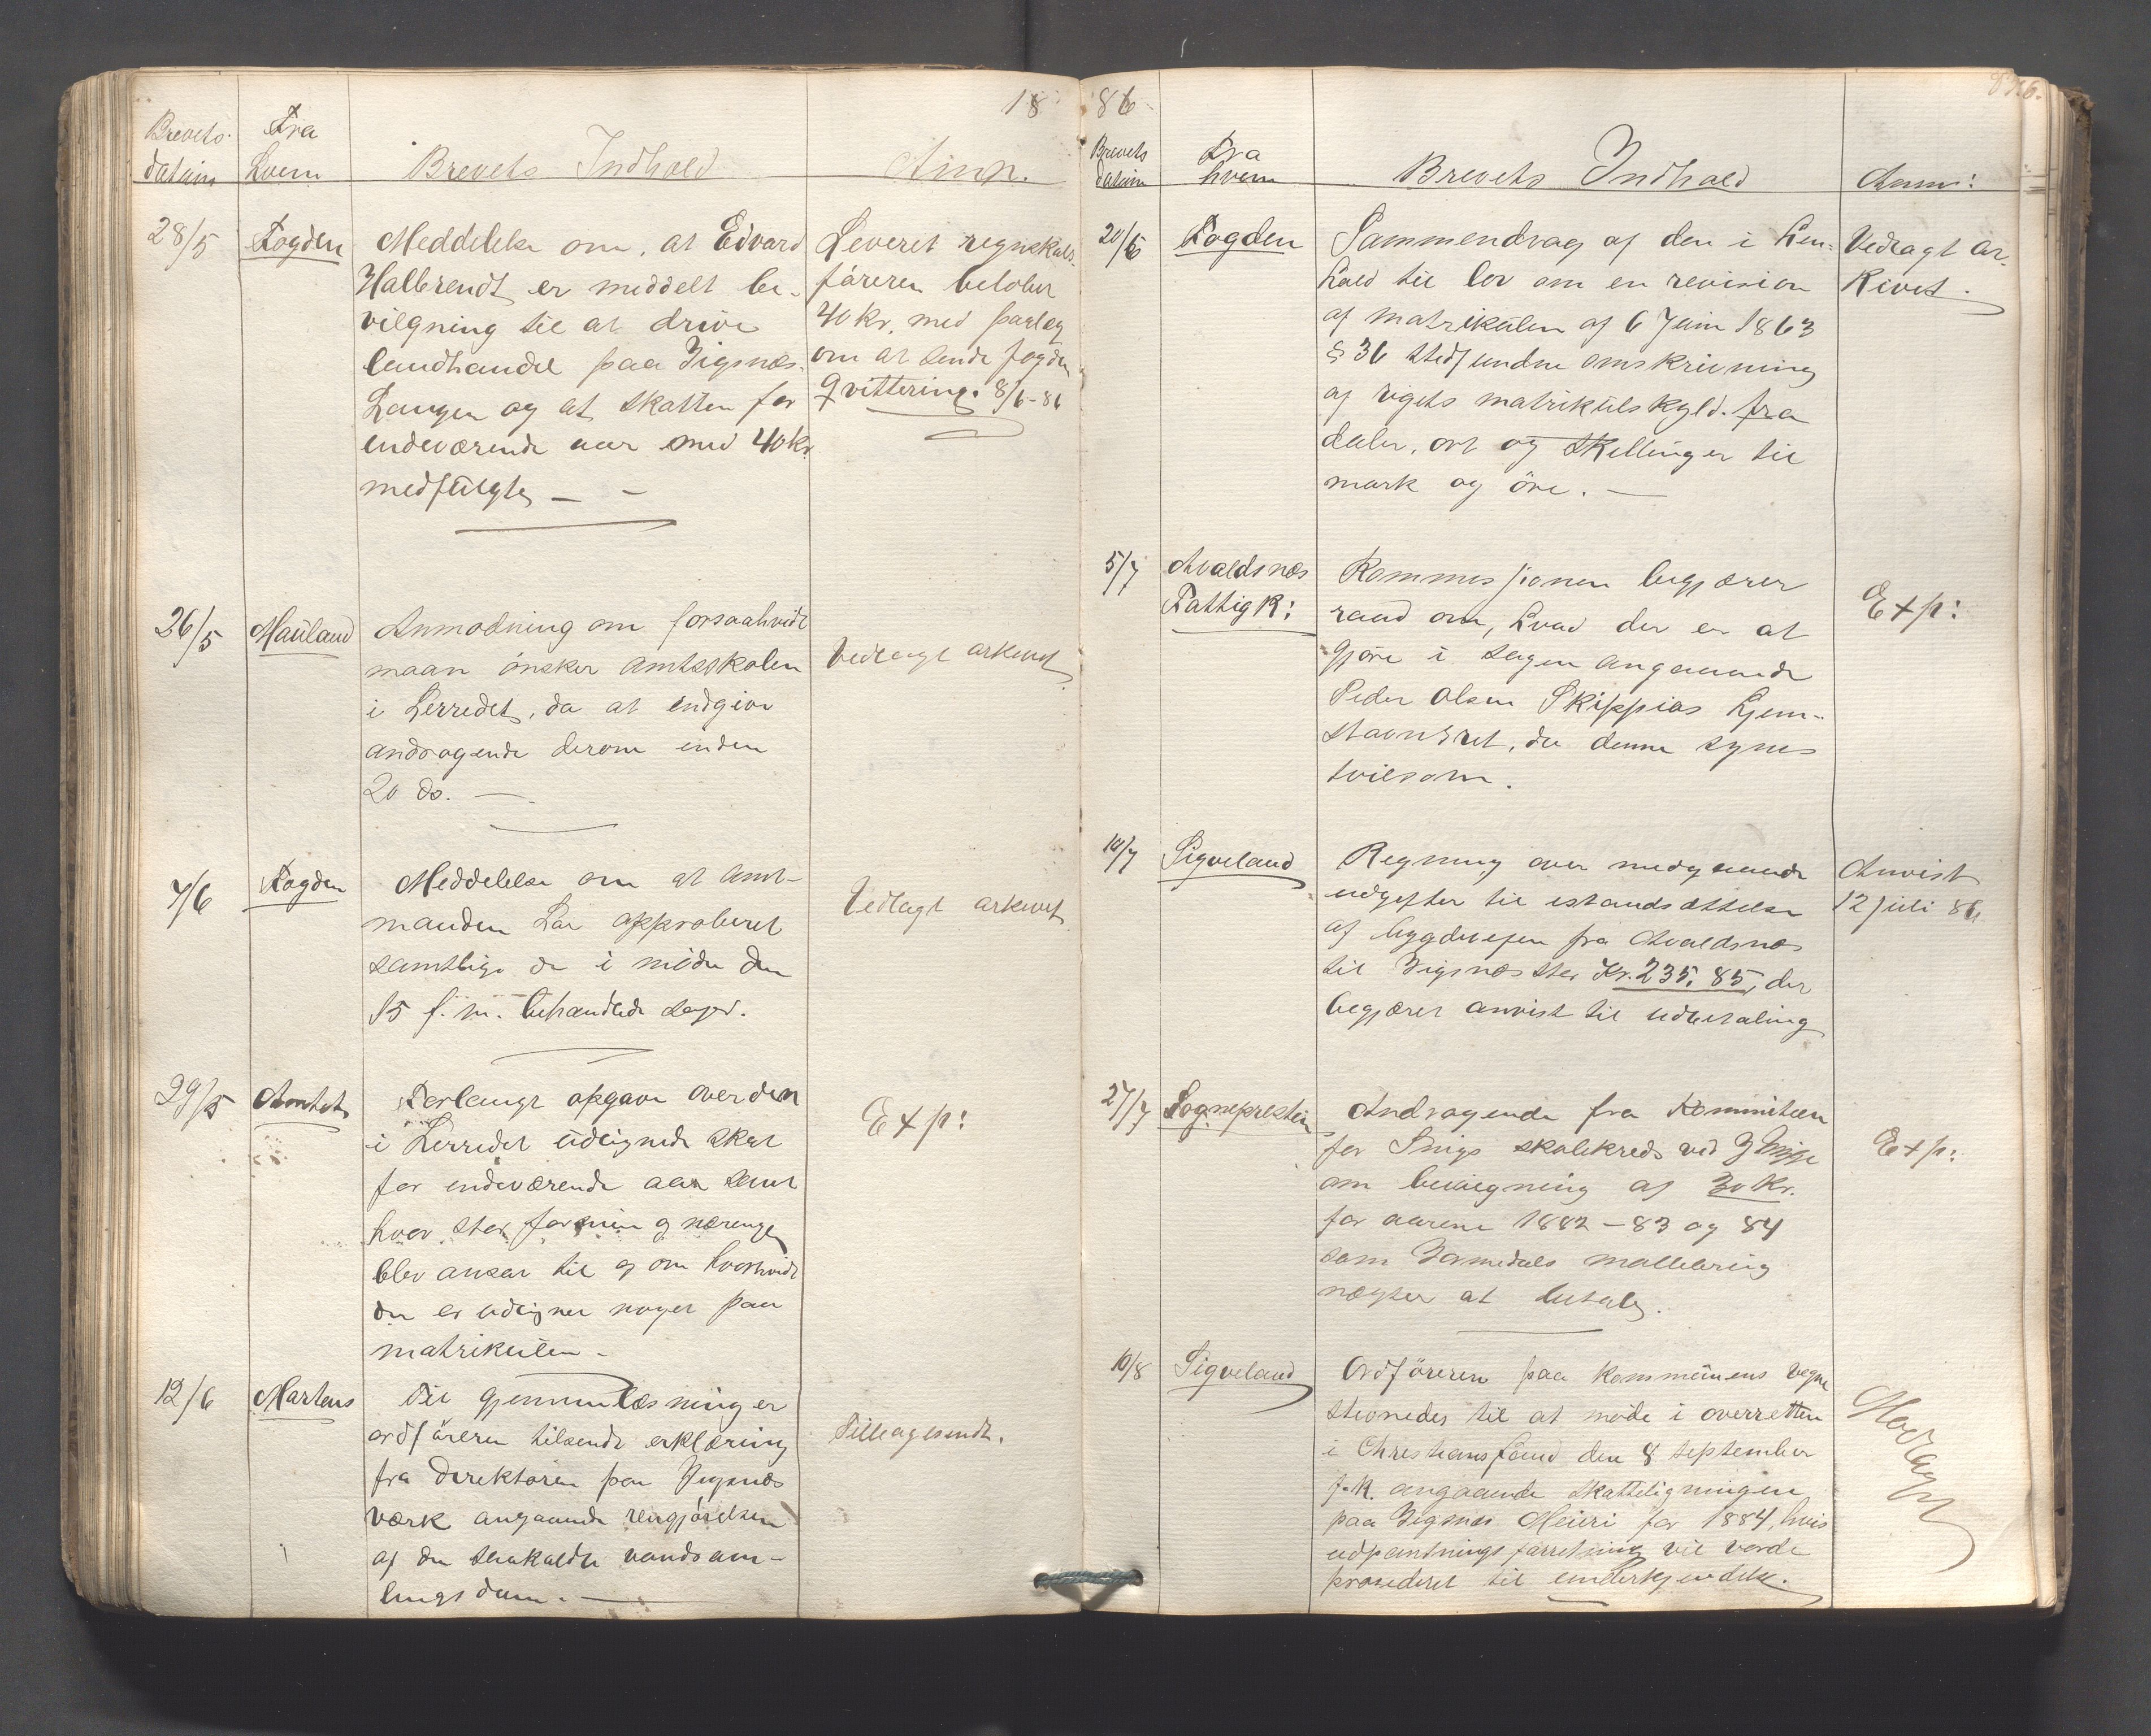 18
Brevets
datum
Fra
hvem
Brevets Indhold
Anm.
28/5
Fogden
Meddelelse om, at Edvard
Halbrendt er meddelt be-
vilgning til at drive
landhandel paa Vigsnæs-
Langen og at skatten for
indeværende aar med 40 kr
medfulgte — —
Leveret regnskabs-
føreren beløbet
40 kr. med paalæg
om at sende fogden
Qvittering. 8/6-86
26/5
Mauland
Anmodning om forsaahvidt
maan ønsker amtsskolen
i Herredet, da at indgive
andragende derom inden
20 ds. —
Vedlagt arkivet
7/6
Fogden
Meddelelse om at amt-
manden har approberet
samtlige de i møde den
15 f. m. behandlede sager.
Vedlagt arkivet
29/5
Amtet
Forlangt opgave over den
i Herredet udlignede skat
for indeværende aar samt
hvor stor formue og næring
blev ansat til og om hvorvidt
der er udlignet noget paa
matrikulen -
Exp:
12/6
Martens
Til gjennemlæsning er
ordføreren tilsendt erklæring
fra direktøren paa Vigsnæs
værk angaaende rengjørelsen
af den saakaldte vandsam-
lingsdam. —
Tilbagesendt.
86
Brevets
datum
Fra
hvem
Brevets Indhold
Anm:
20/6
Fogden
Sammendrag af den i Hen-
hold til lov om en revision
af matrikulen af 6 Juni 1863
§ 36 stedfundne omskrivning
af rigets matrikulskyld fra
daler, ort og skillinger til
mark og øre. —
Vedlagt ar-
kivet.
5/7
Avaldsnes
Fattigk:
Kommissionen begjærer
raad om, hvad der er at
gjøre i sagen angaaende
Peder Olsen Skippias Hjem-
stavnsret, da denne synes
tvilsom.
Exp:
10/7
Sigveland
Regning over medgaaende
udgifter til istandsættelse
af bygdeveien fra Avaldsnes
til Vigsnæs stor Kr. 235,85, der
begjæret anvist til udbetaling
Anvist
12 juli 86
27/7
Sogneprestein
Andragende fra Kommiteen
for Snigs skolekreds ved
om bevilgning af 30 Kr.
for aarene 1882 – 83 og 84
som
nægter at betale.
Exp:
10/8
Sigveland
Ordføreren paa kommunens vegne
stevnedes til at møde i overretten
i Christianssand den 8 september
f.k. angaaende skatteligningen
paa Vigsnæs Meieri for 1884, hvis
udpantningsforretning vil vorde
prosederet til underkjendelse.
Modtaget